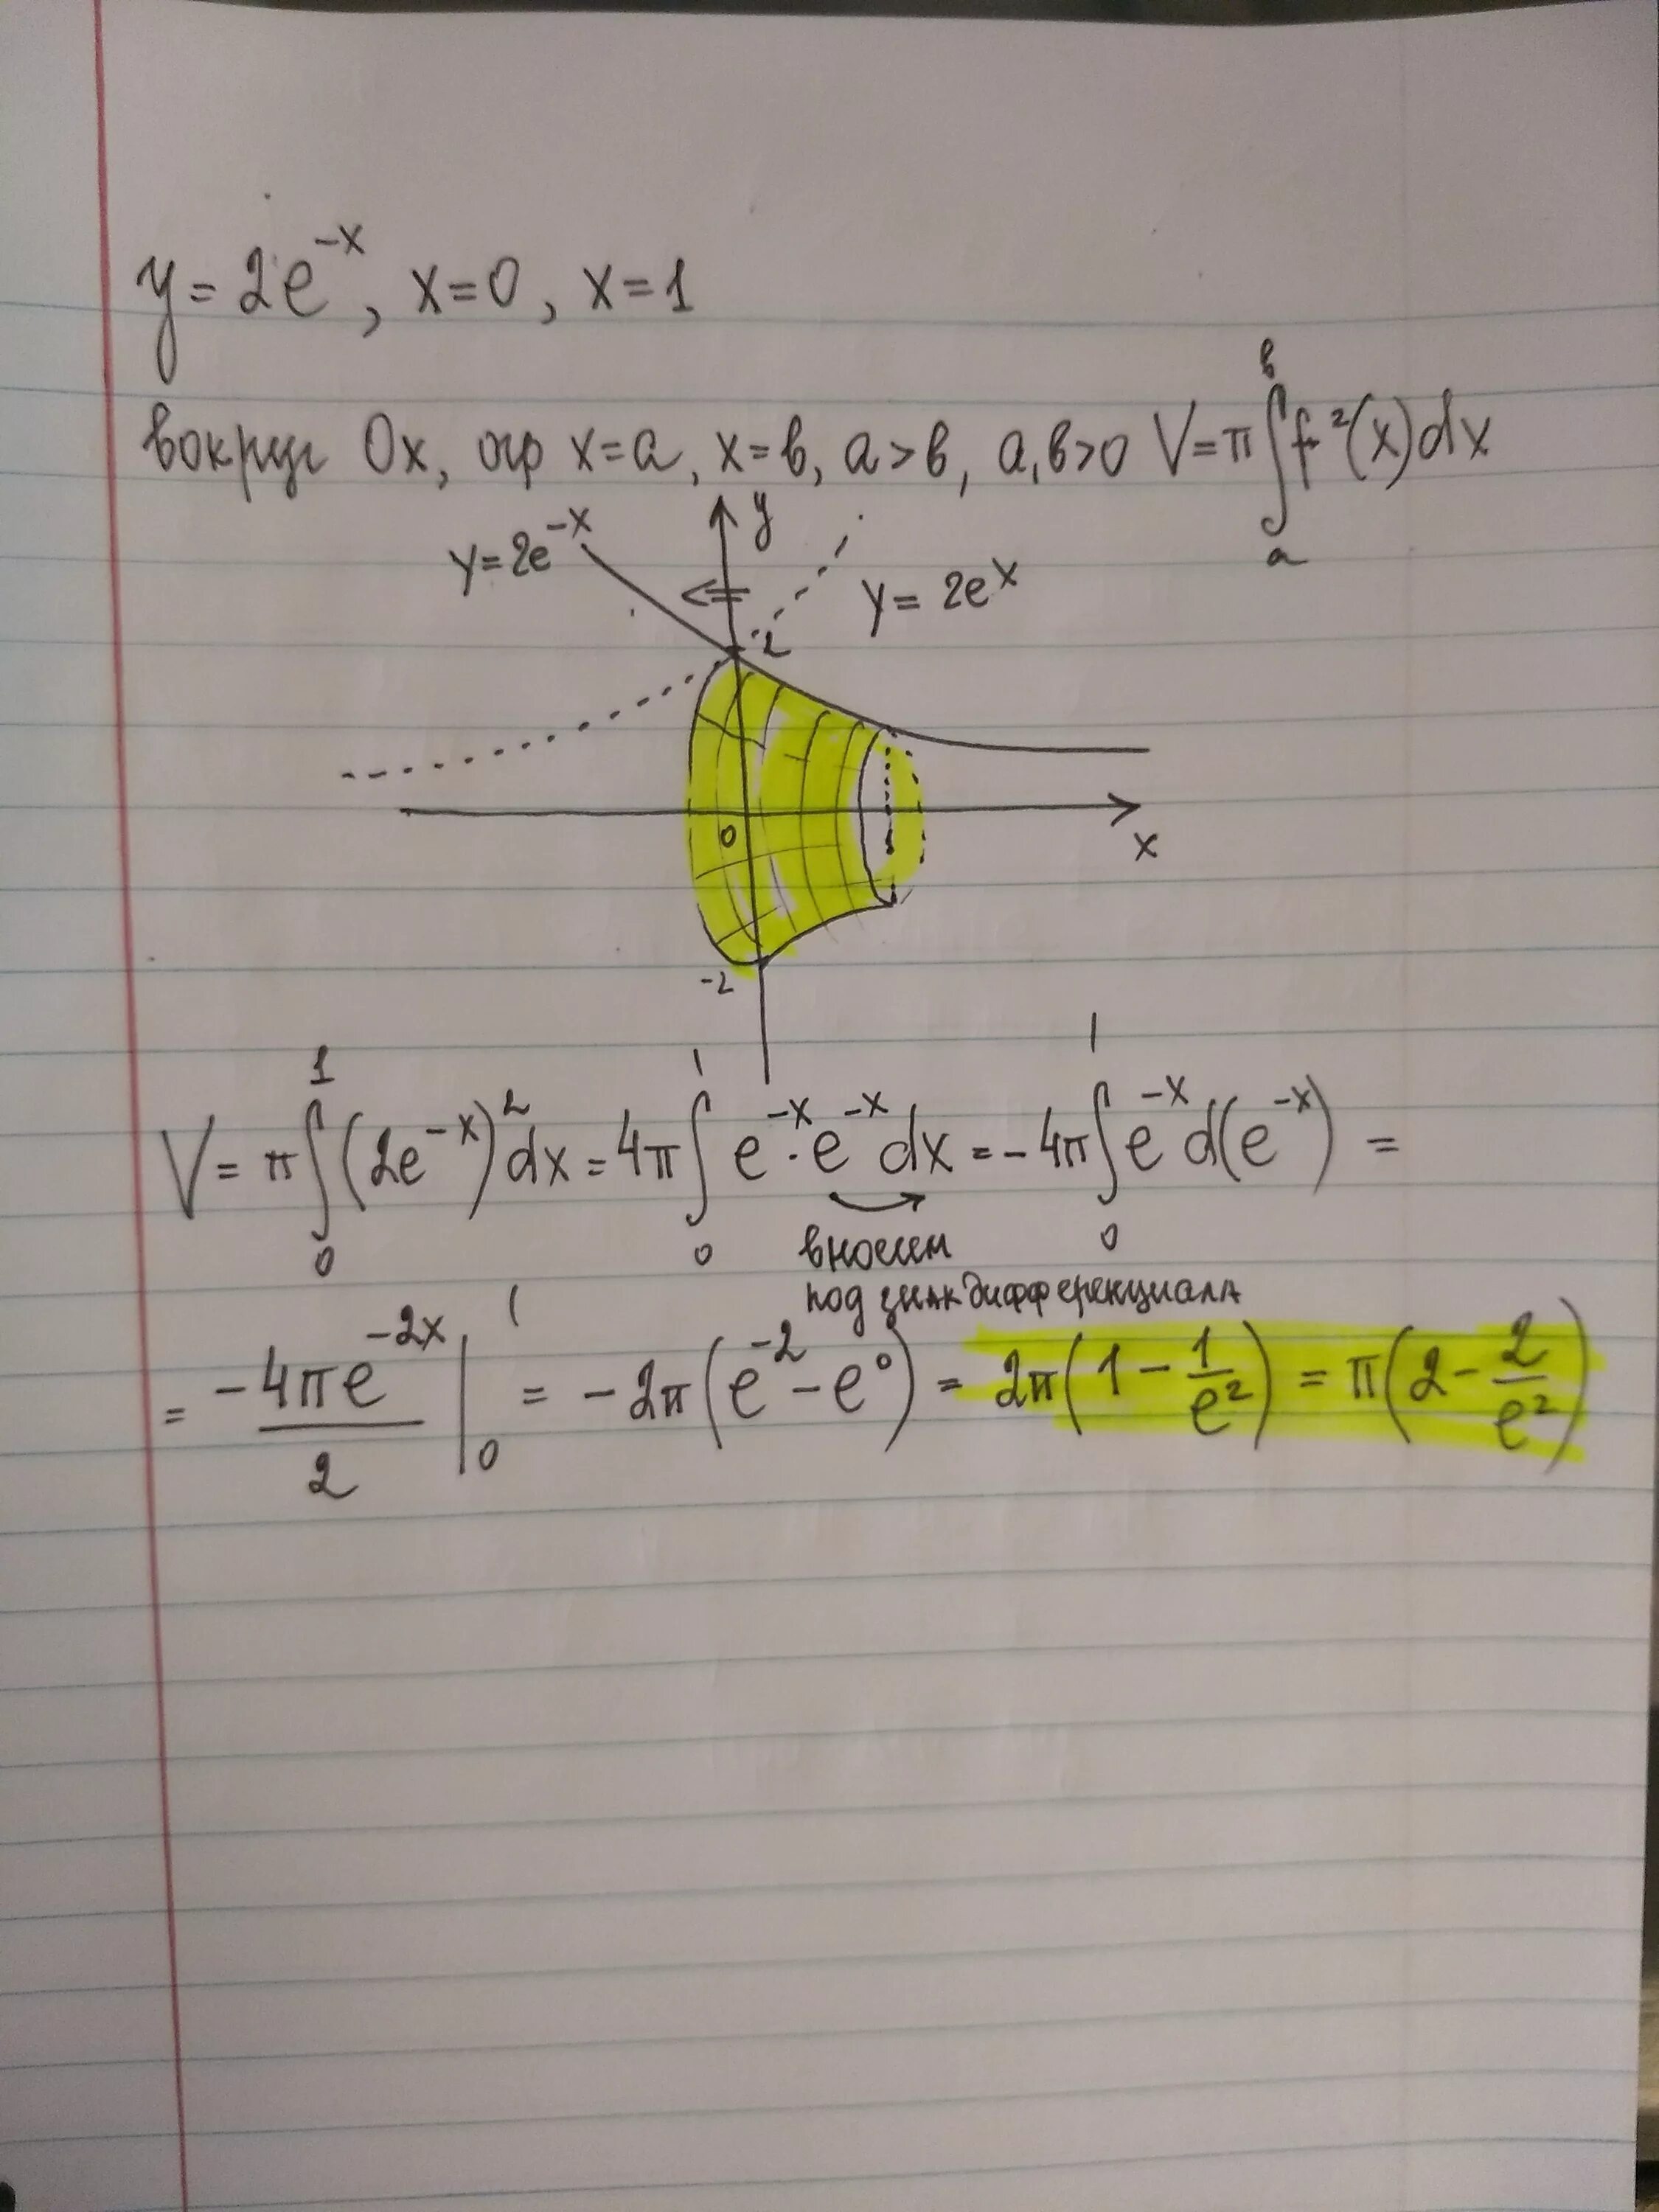 y = 2e^{-x}, x=0, x=1
вокруг Ox, огр x=a, x=в, a>в, a,в>0 V=π∫_a^в f²(x)dx
y=2e^{-x}
y
y = 2e^x
2
0
x
-2
V = π∫_0^1 (2e^{-x})² dx = 4π∫_0^1 e^{-x}·e^{-x} dx = -4π∫_0^1 e^{-x} d(e^{-x}) =
вносим
под знак дифференциала
= \frac{-4πe^{-2x}}{2} |_0^1 = -2π(e^{-2} - e^0) = 2π(1 - \frac{1}{e²}) = π(2 - \frac{2}{e²})